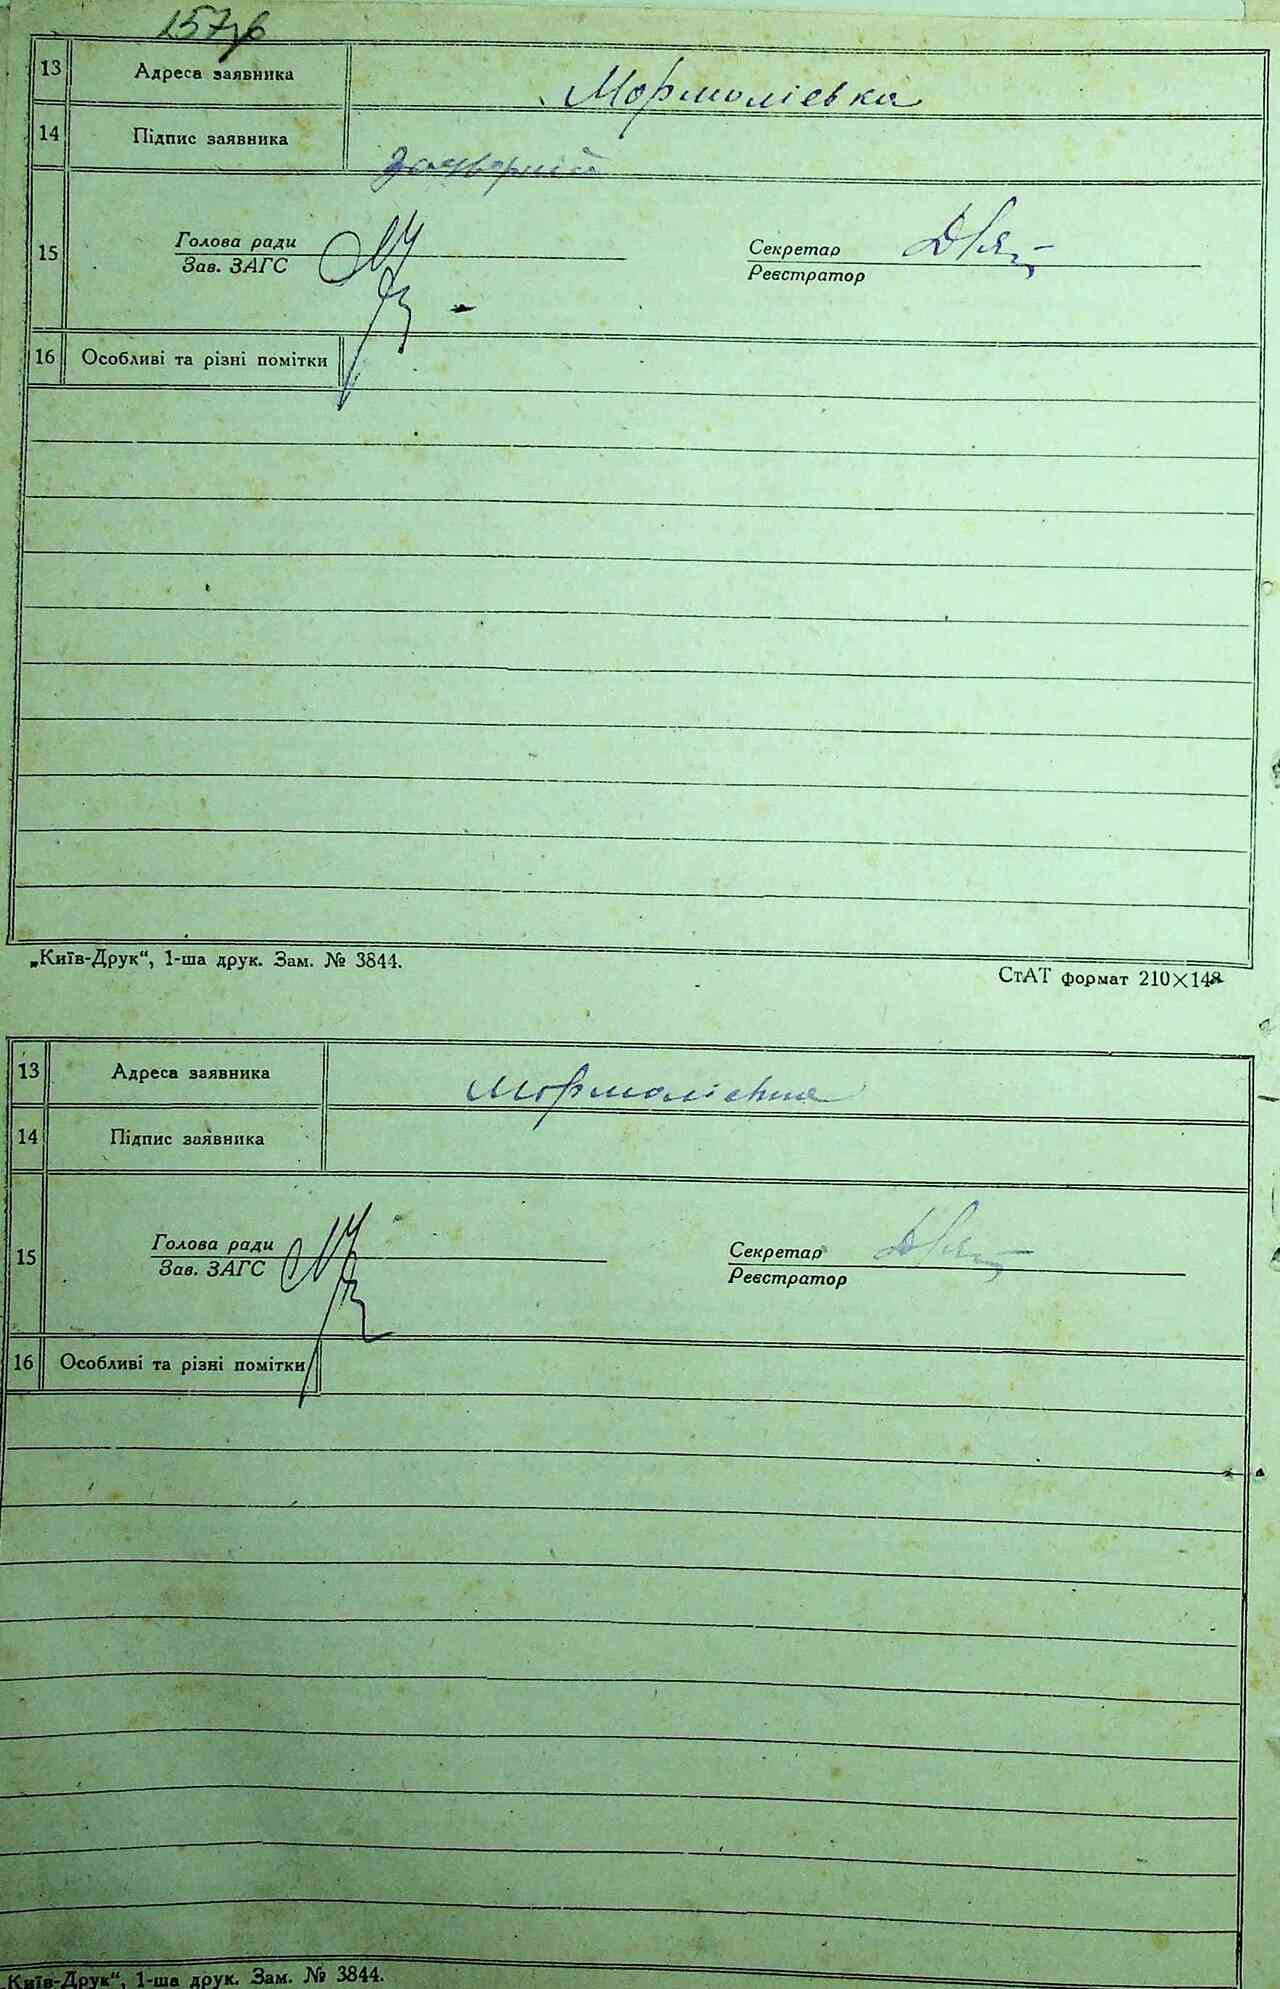 157зв
13 Адреса заявника Мормоліевка
14 Підпис заявника
15 Голова ради Секретар
Зав. ЗАГС Реєстратор
16 Особливі та різні помітки
„Київ-Друк“, 1-ша друк. Зам. № 3844.
СтАТ формат 210×148
13 Адреса заявника Мормоліевка
14 Підпис заявника
15 Голова ради Секретар
Зав. ЗАГС Реєстратор
16 Особливі та різні помітки
„Київ-Друк“, 1-ша друк. Зам. № 3844.